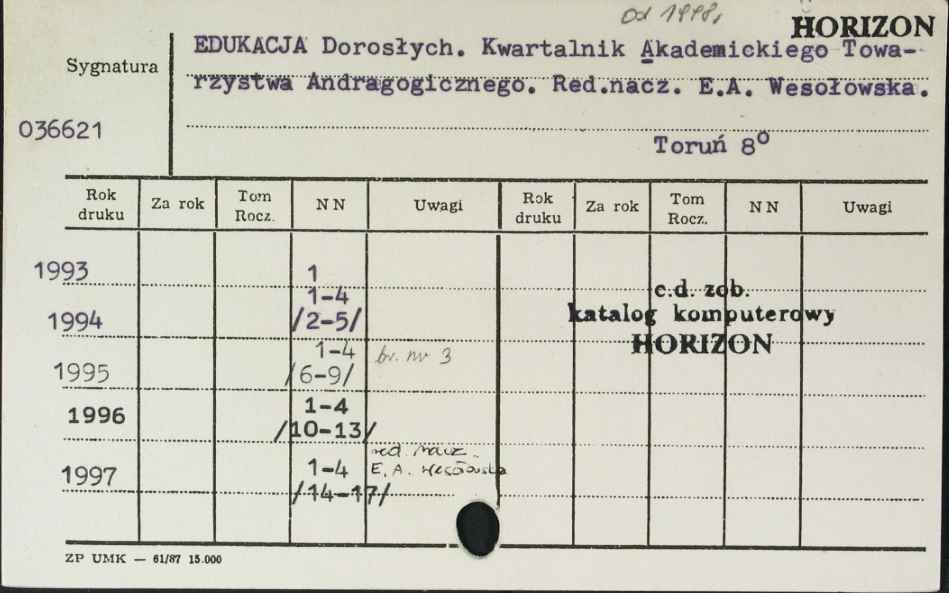 od 1998,
HORIZON
Sygnatura
EDUKACJA Dorosłych. Kwartalnik Akademickiego Towa-
rzystwa Andragogicznego. Red.nacz. E.A. Wesołowska.
036621
Toruń 8⁰
Rok druku Za rok Tom Rocz. NN Uwagi Rok druku Za rok Tom Rocz. NN Uwagi
1993 1
1-4
1994 /2-5/
1-4 br. nr 3
1995 /6-9/
1996 1-4
/10-13/
red. nacz.
1997 1-4 E. A. Wesołowska
/14-17/
c.d. zob.
katalog komputerowy
HORIZON
ZP UMK — 61/87 15.000